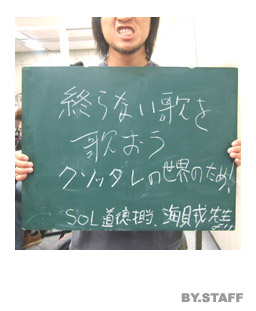 終らない歌を
歌おう
クソッタレの世界のため！
SOL道徳担当、海賊先生
より
BY.STAFF